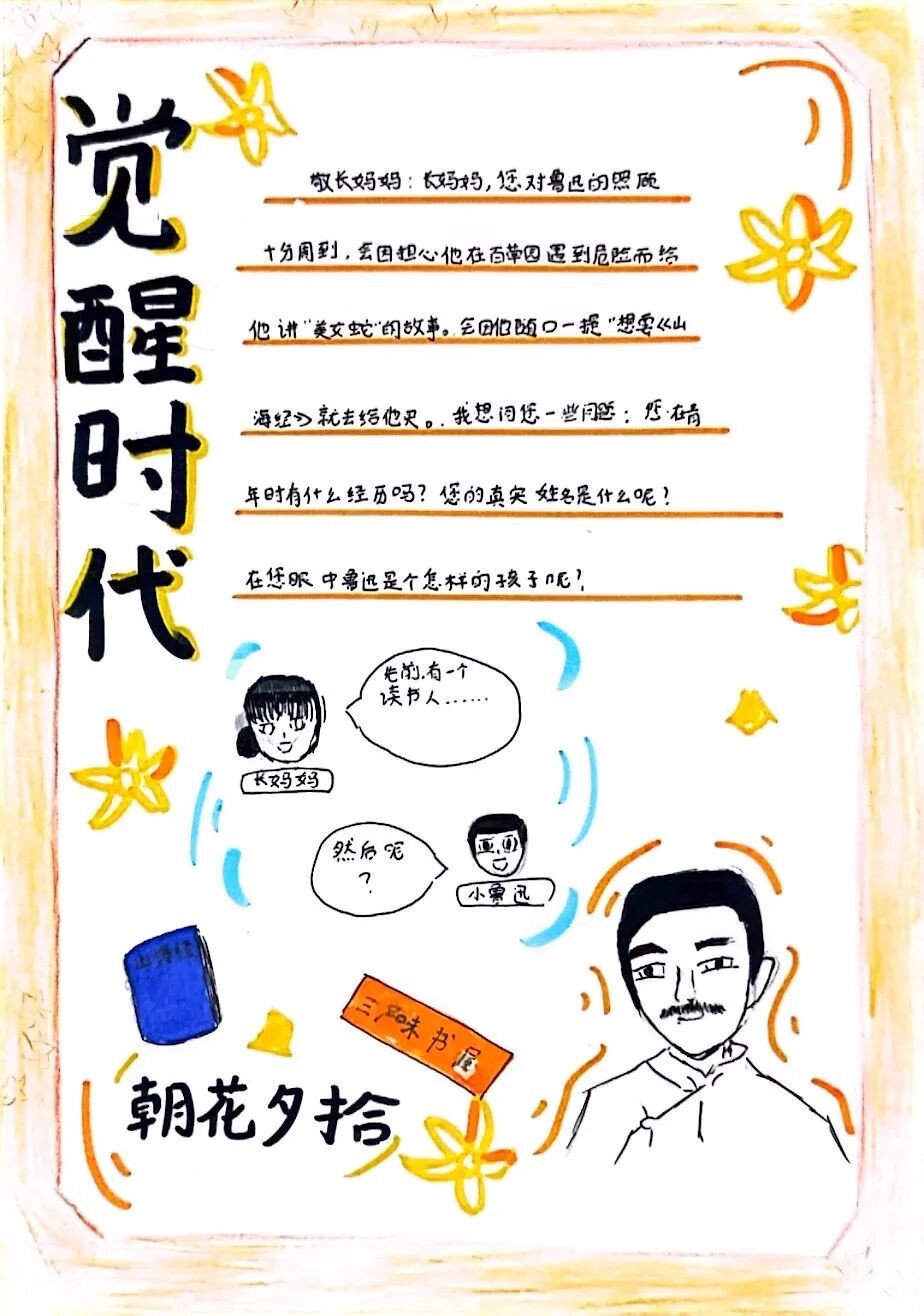 觉醒时代
敬长妈妈：长妈妈，您对鲁迅的照顾
十分周到，会因担心他在百草园遇到危险而给
他讲"美女蛇"的故事。会因他随口一提"想要《山
海经》就去给他买。我想问您一些问题：您在青
年时有什么经历吗？您的真实姓名是什么呢？
在您眼中鲁迅是个怎样的孩子呢？
先前，有一个
读书人……
长妈妈
然后呢
？
小鲁迅
山海经
三味书屋
朝花夕拾